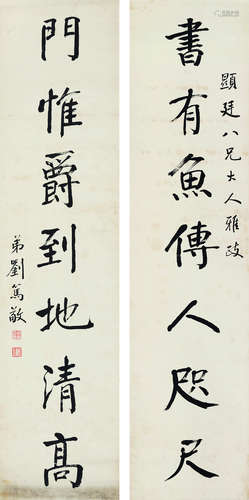 顯廷八兄大人雅政
書有魚傳人咫尺
門惟爵到地清高
弟劉篤敬